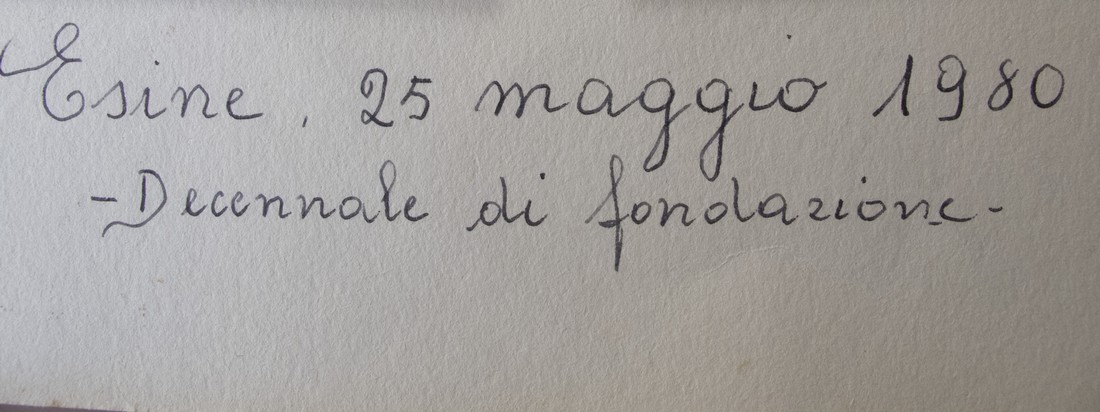 Esine, 25 maggio 1980
- Decennale di fondazione -